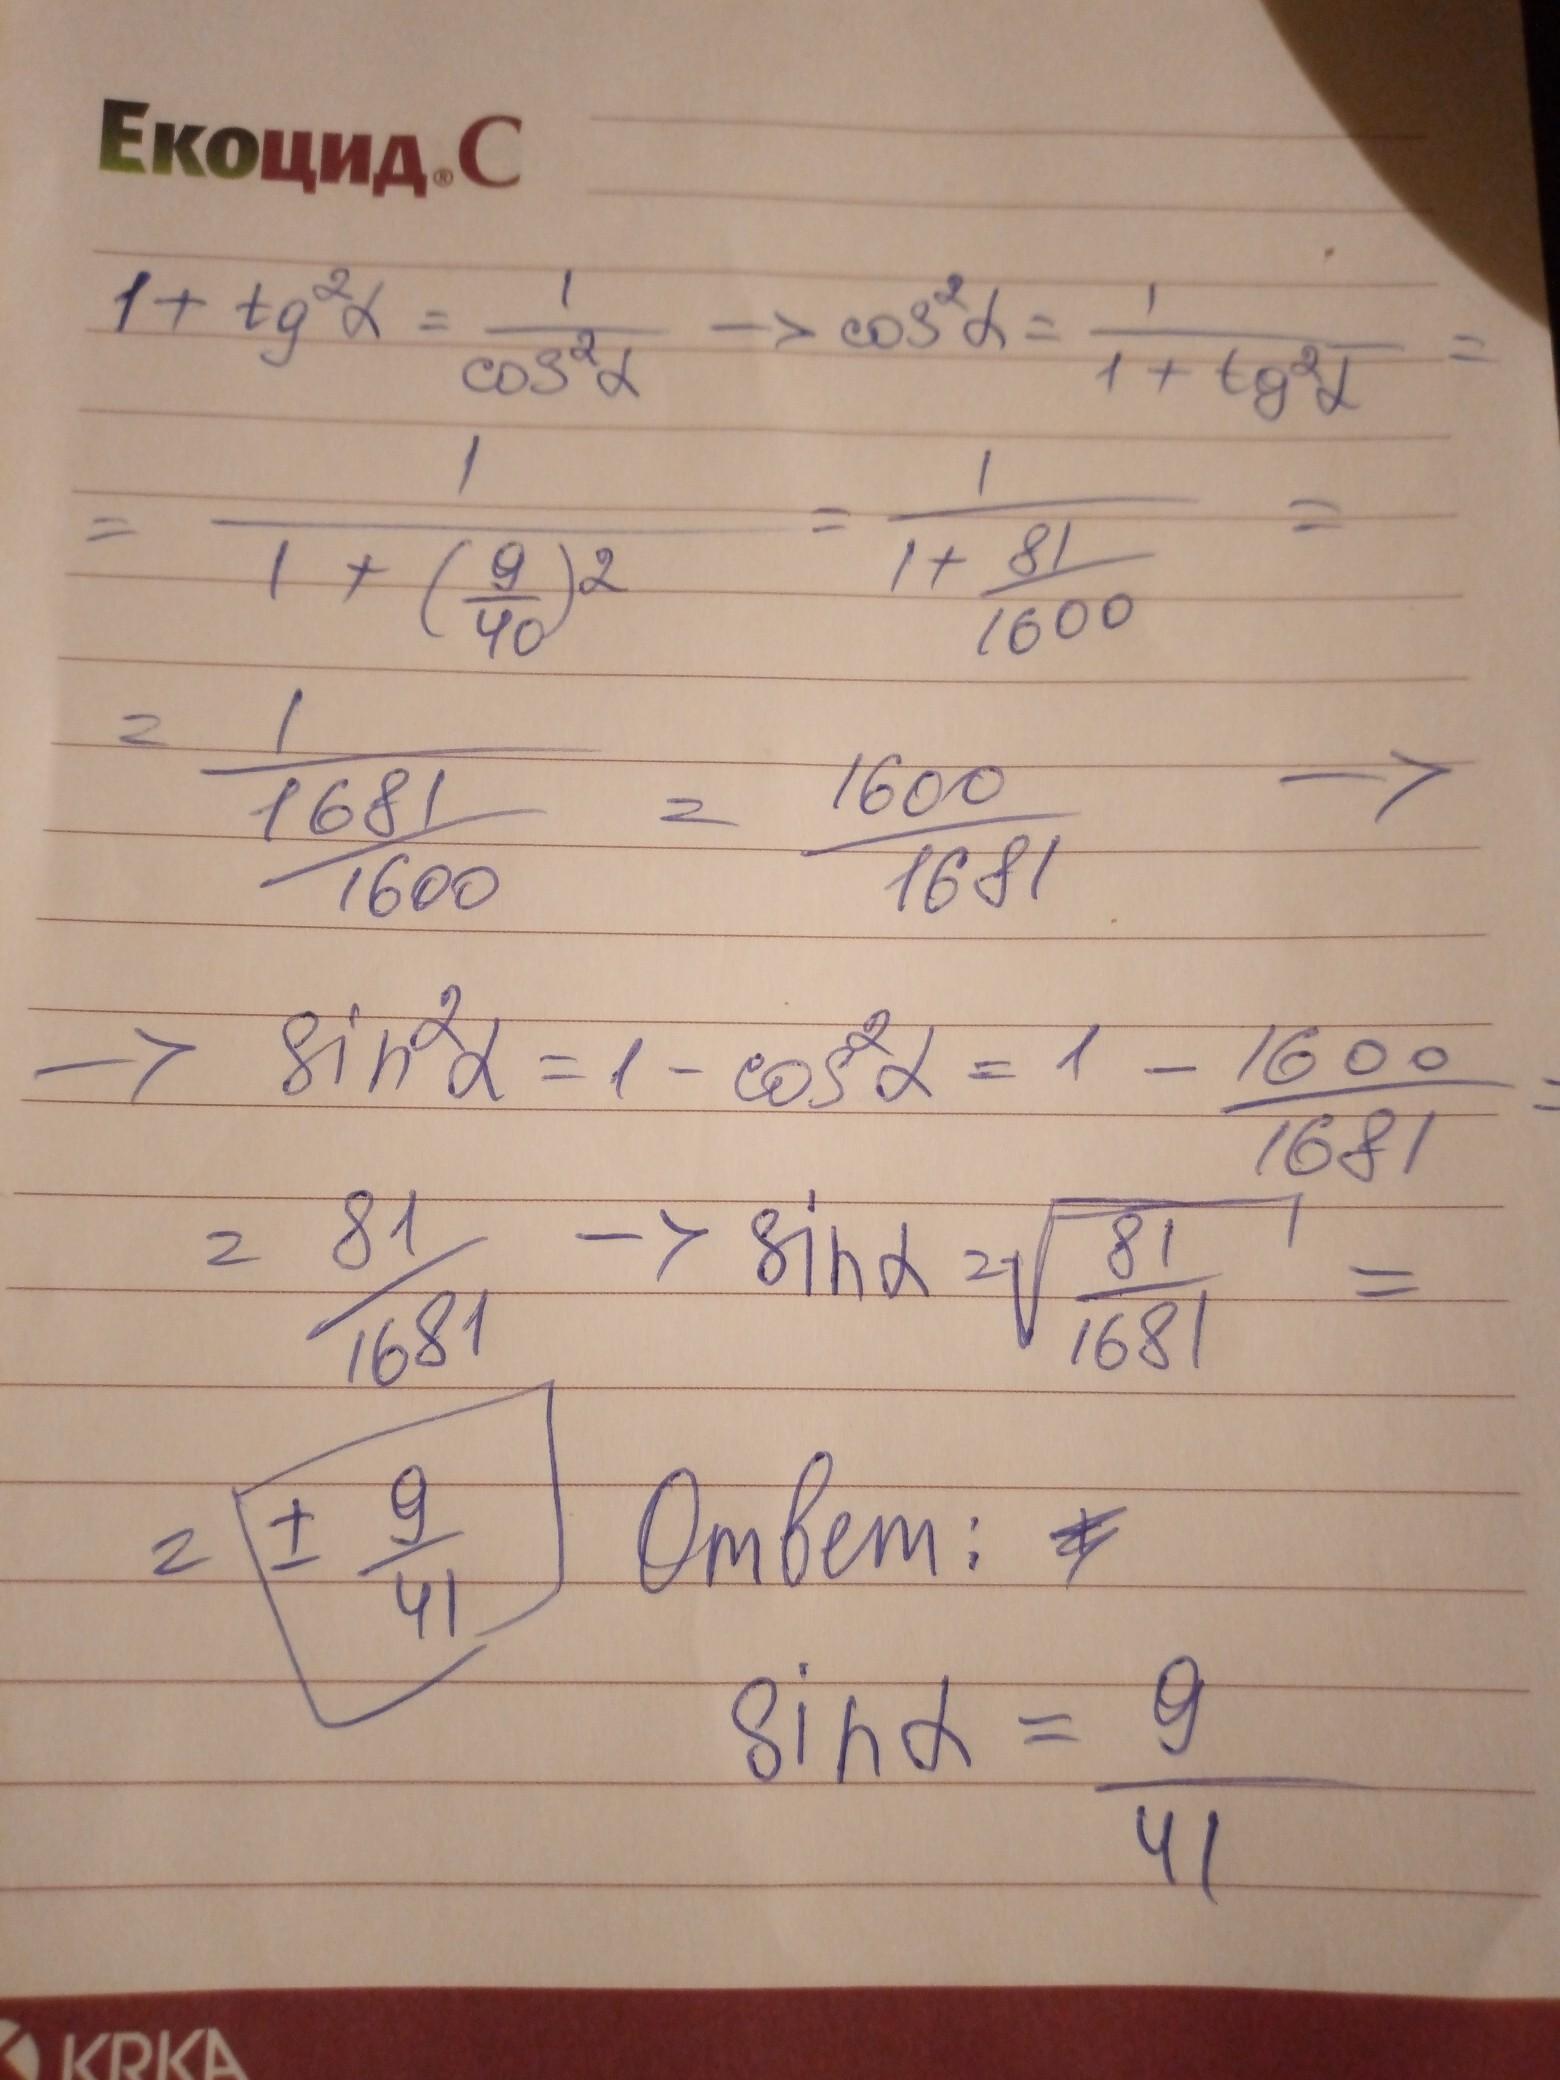 Екоцид®С
1 + tg²α = 1/cos²α —> cos²α = 1/(1 + tg²α) =
= 1/(1 + (9/40)²) = 1/(1 + 81/1600) =
= 1/(1681/1600) = 1600/1681 —>
—> sin²α = 1 - cos²α = 1 - 1600/1681 =
= 81/1681 —> sinα = √(81/1681) =
= ± 9/41 Ответ:
sinα = 9/41
KRKA